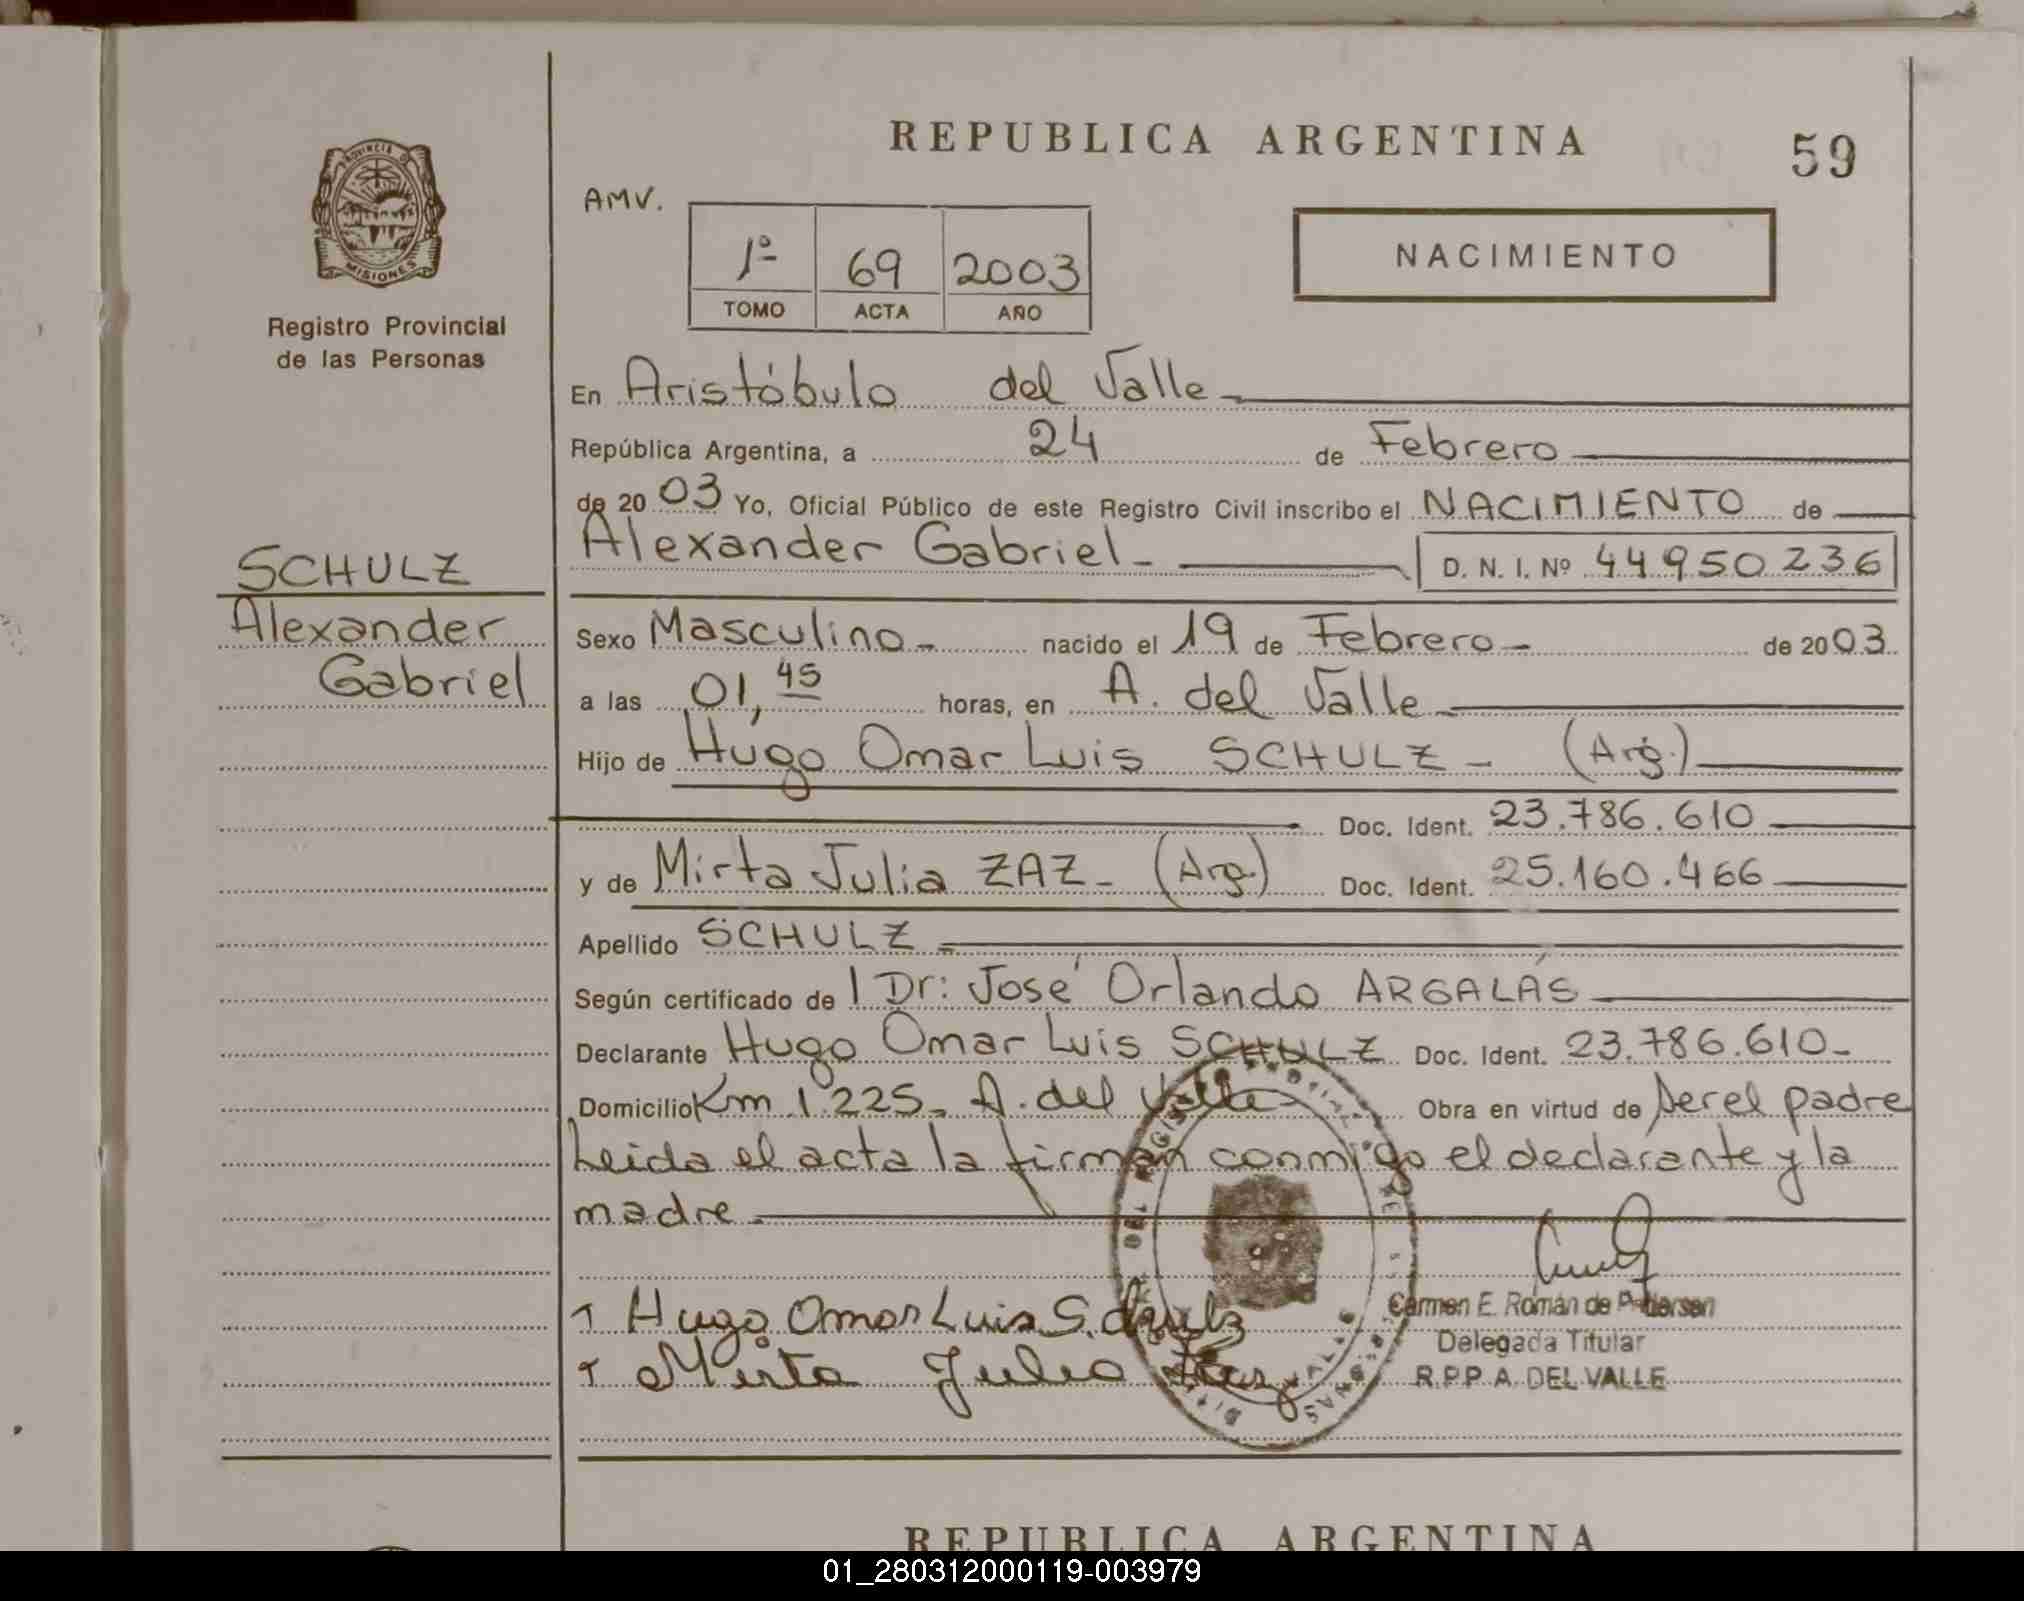 REPUBLICA ARGENTINA
59
PROVINCIA DE
MISIONES
Registro Provincial
de las Personas
AMV.
1º 69 2003
TOMO ACTA AÑO
NACIMIENTO
En Aristóbulo del Valle
República Argentina, a 24 de Febrero
de 2003 Yo, Oficial Público de este Registro Civil inscribo el NACIMIENTO de
Alexander Gabriel D. N. I. Nº 44950236
SCHULZ
Alexander
Gabriel
Sexo Masculino nacido el 19 de Febrero de 2003
a las 01,45 horas, en A. del Valle
Hijo de Hugo Omar Luis SCHULZ (Arg.)
Doc. Ident. 23.786.610
y de Mirta Julia ZAZ (Arg.) Doc. Ident. 25.160.466
Apellido SCHULZ
Según certificado de Dr: José Orlando ARGALÁS
Declarante Hugo Omar Luis SCHULZ Doc. Ident. 23.786.610
Domicilio Km 1.225 A. del Valle Obra en virtud de ser el padre
Leida el acta la firman conmigo el declarante y la
madre
Hugo Omar Luis Schulz
Mirta Julia Zaz
Carmen E. Román de Pedersen
Delegada Titular
R.P.P. A. DEL VALLE
REPUBLICA ARGENTINA
01_280312000119-003979